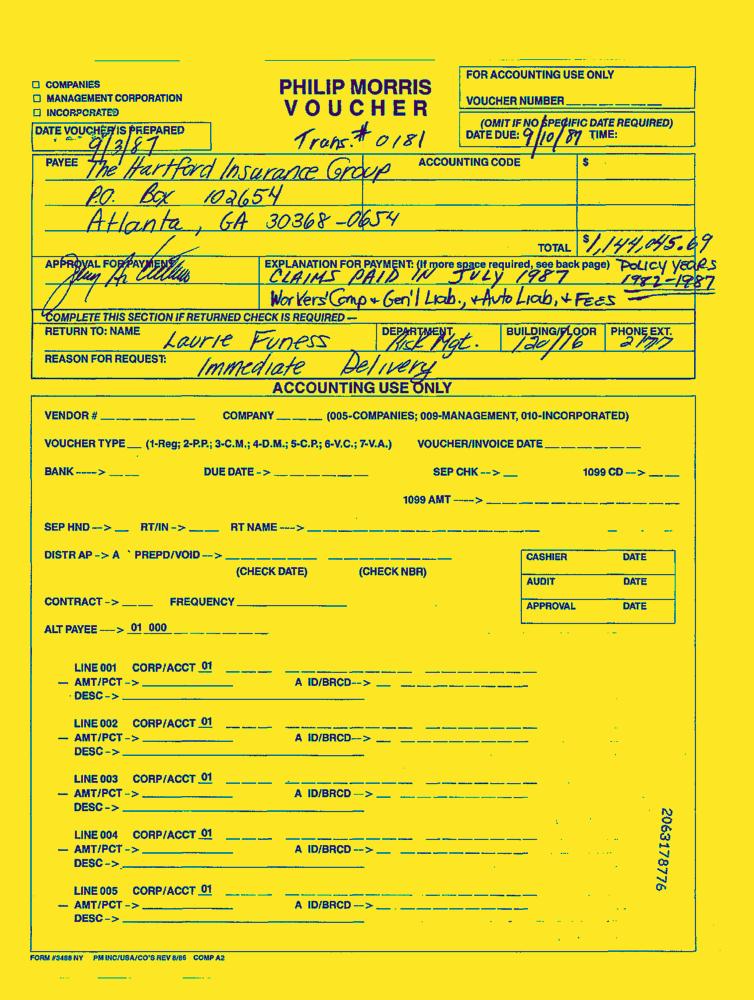 ☐ COMPANIES
☐ MANAGEMENT CORPORATION
☐ INCORPORATED
PHILIP MORRIS
VOUCHER
Trans.# 0181
FOR ACCOUNTING USE ONLY
VOUCHER NUMBER
(OMIT IF NO SPECIFIC DATE REQUIRED)
DATE DUE: 9/10/87 TIME:
DATE VOUCHER IS PREPARED
9/3/87
PAYEE The Hartford Insurance Group
ACCOUNTING CODE $
P.O. Box 102654
Atlanta, GA 30368-0654
TOTAL $1,144,045.69
APPROVAL FOR PAYMENT
EXPLANATION FOR PAYMENT: (If more space required, see back page) POLICY YEARS
CLAIMS PAID IN JULY 1987 1982-1987
Workers' Comp + Gen'l Liab., + Auto Liab, + FEES
COMPLETE THIS SECTION IF RETURNED CHECK IS REQUIRED —
RETURN TO: NAME Laurie Funess
DEPARTMENT Risk Mgt.
BUILDING/FLOOR 120/16
PHONE EXT.
REASON FOR REQUEST: Immediate Delivery
ACCOUNTING USE ONLY
VENDOR # COMPANY (005-COMPANIES; 009-MANAGEMENT, 010-INCORPORATED)
VOUCHER TYPE (1-Reg; 2-P.P.; 3-C.M.; 4-D.M.; 5-C.P.; 6-V.C.; 7-V.A.) VOUCHER/INVOICE DATE
BANK ----> DUE DATE -> SEP CHK --> 1099 CD -->
1099 AMT ---->
SEP HND --> RT/IN -> RT NAME --->
DISTR AP -> A PREPD/VOID -->
(CHECK DATE) (CHECK NBR)
CASHIER DATE
AUDIT DATE
APPROVAL DATE
CONTRACT -> FREQUENCY
ALT PAYEE ---> 01 000
LINE 001 CORP/ACCT 01
— AMT/PCT -> A ID/BRCD-->
DESC ->
LINE 002 CORP/ACCT 01
— AMT/PCT -> A ID/BRCD-->
DESC ->
LINE 003 CORP/ACCT 01
— AMT/PCT -> A ID/BRCD -->
DESC ->
LINE 004 CORP/ACCT 01
— AMT/PCT -> A ID/BRCD -->
DESC ->
LINE 005 CORP/ACCT 01
— AMT/PCT -> A ID/BRCD -->
DESC ->
2063178776
FORM #3488 NY PM INC/USA/CO'S REV 8/86 COMP A2